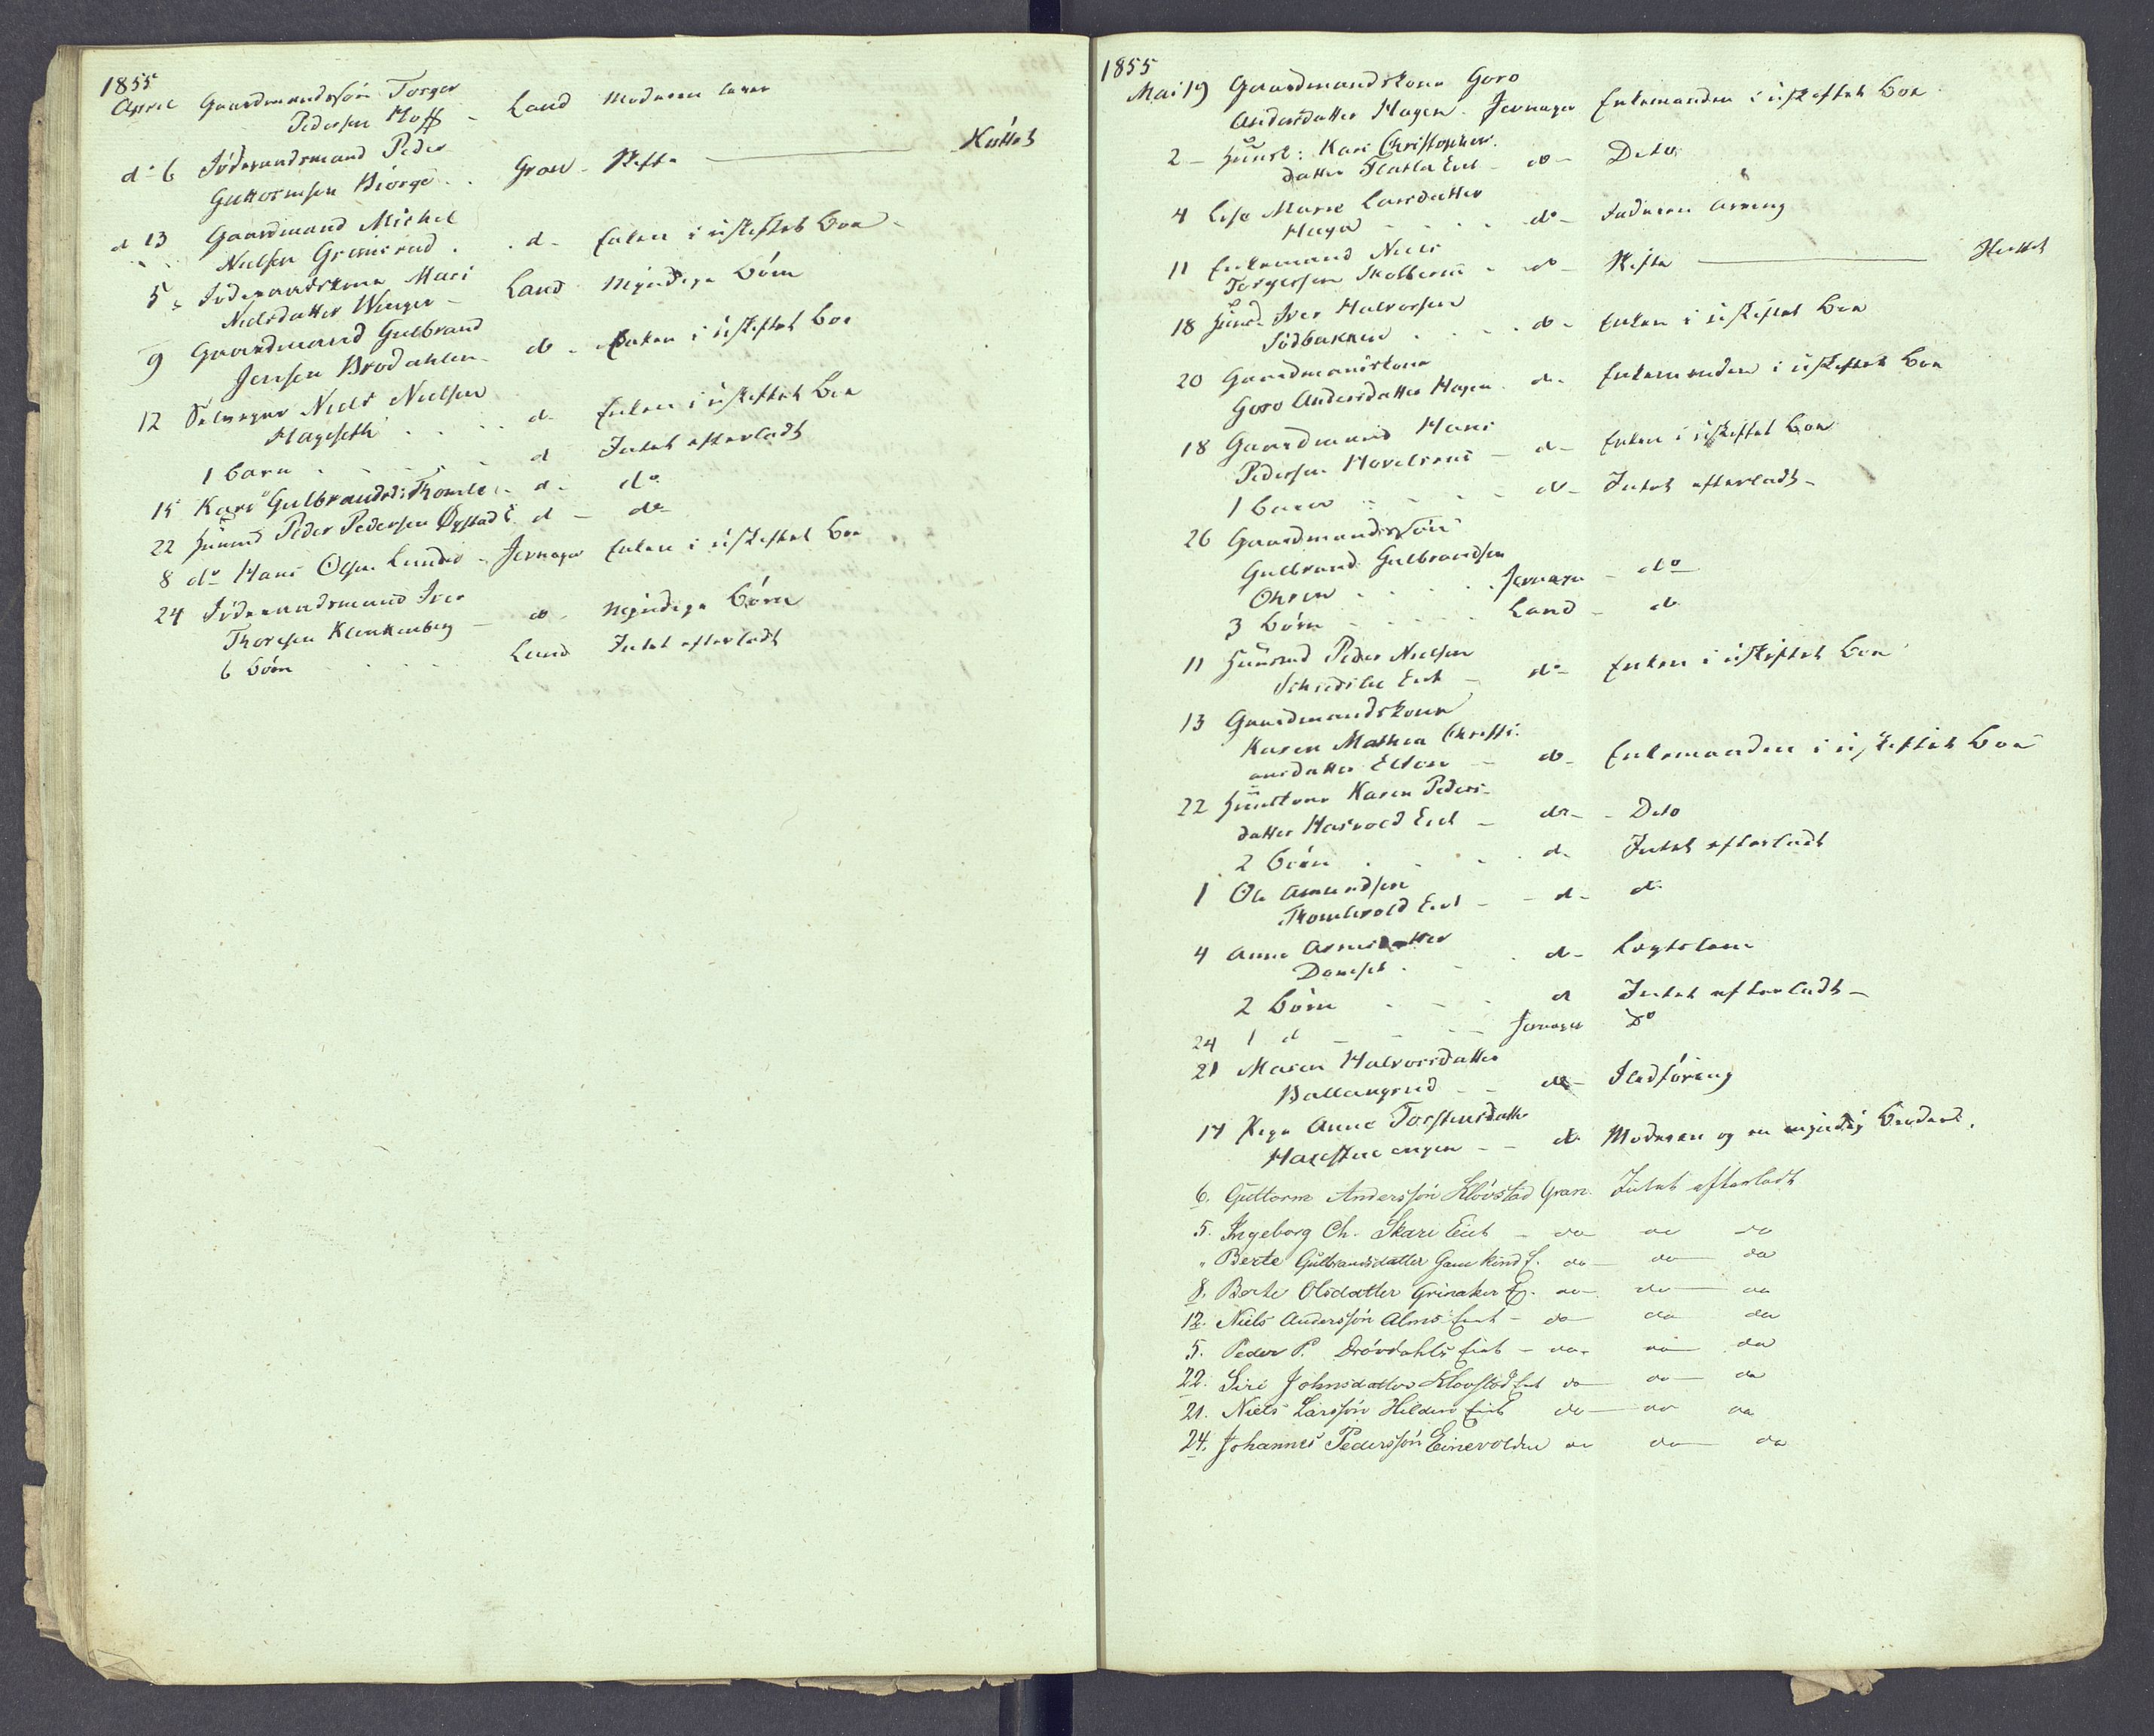 1855
April Gaardmandssøn Torger
Pedersen Hoff - Land Moderen lever
do 6 Føderaadsmand Peder
Guttormsen Biørge . . Gran - Skifte Sluttet
d 13 Gaardmand Michel
Nielsen Grimsrud . . d - Enken i uskiftet Boe -
5 Føderaadskone Mari
Nielsdatter Wenger - Land Myndige Børn
9 Gaardmand Gulbrand
Jensen Brodahlen - do - Enken i uskiftet Boe
12 Selveyer Niels Nielsen
Hageseth . . . . d - Enken i uskiftet Boe
1 Barn . . . . d Intet efterladt
15 Kari Gulbrandsd: Thomle - d - do
22 Huusmd Peder Pedersen Øystad E d - do
8 do Hans Olsen Lunder - Jevnager Enken i uskiftet Boe
24 Føderaadsmand Iver
Thoresen Klinkenberg - do - Myndige Børn
6 Børn . . . . Land Intet efterladt
1855
Mai 19 Gaardmandskone Goro
Andersdatter Hagen . Jevnager Enkemanden i uskiftet Boe
2 - Huusk: Kari Christophers-
datter Eiet - do - Deto
4 Lise Marie Larsdatter
Haga . . . . do - Faderen Arving
11 Enkemand Niels
Torgersen - do - Skifte Sluttet
18 Huusmd Iver Halvorsen
Sødbakken . . . do - Enken i uskiftet Boe
20 Gaardmandskone
Goro Andersdatter Hagen . do - Enkemanden i uskiftet Boe
18 Gaardmand Hans
Pedersen - d - Enken i uskiftet Boe
1 Barn . . . - do - Intet efterladt -
26 Gaardmandssøn
Gulbrand Gulbrandsen
Ohren . . . . Jevnager - do
3 Børn . . . . Land - do
11 Huusmd Peder Nielsen
Eiet - do - Enken i uskiftet Boe
13 Gaardmandskone
Karen Mathea Christi-
ansdatter Elton - do - Enkemanden i uskiftet Boe
22 Huuskone Karen Peders-
datter Hasvold Eiet - do - - Deto
2 Børn . . . . d - Intet efterladt
1 Ole Amundsen
Thomlevold Eiet - - d - do
4 Anne Arnesdatter
. . . d - Lægdslem
2 Børn . . . d Intet efterladt -
24 1 d - - - Jevnager Do
21 Maren Halvorsdatter
Ballangrud - - do - Ildføring
17 Pige Anne Torstensdatter
- - do Moderen og en myndig Broder.
6. Guttorm Anderssøn Kløvstad Gran. Intet efterladt
5. Ingeborg Ch. Skari Eiet - do do do
" Berte Gulbrandsdatter Gamkind E. do - do - do
8. Berte Olsdatter Grinaker E. do - do - do
12. Niels Anderssøn Alms Eiet - do do do
5. Peder P. Drøvdahls Eiet - do - do do
22. Siri Johnsdatter Kløvstad Eiet do - do - do
21. Niels Larssøn Hilden Eiet do - do do
24. Johannes Pederssøn Einevolden do do - do